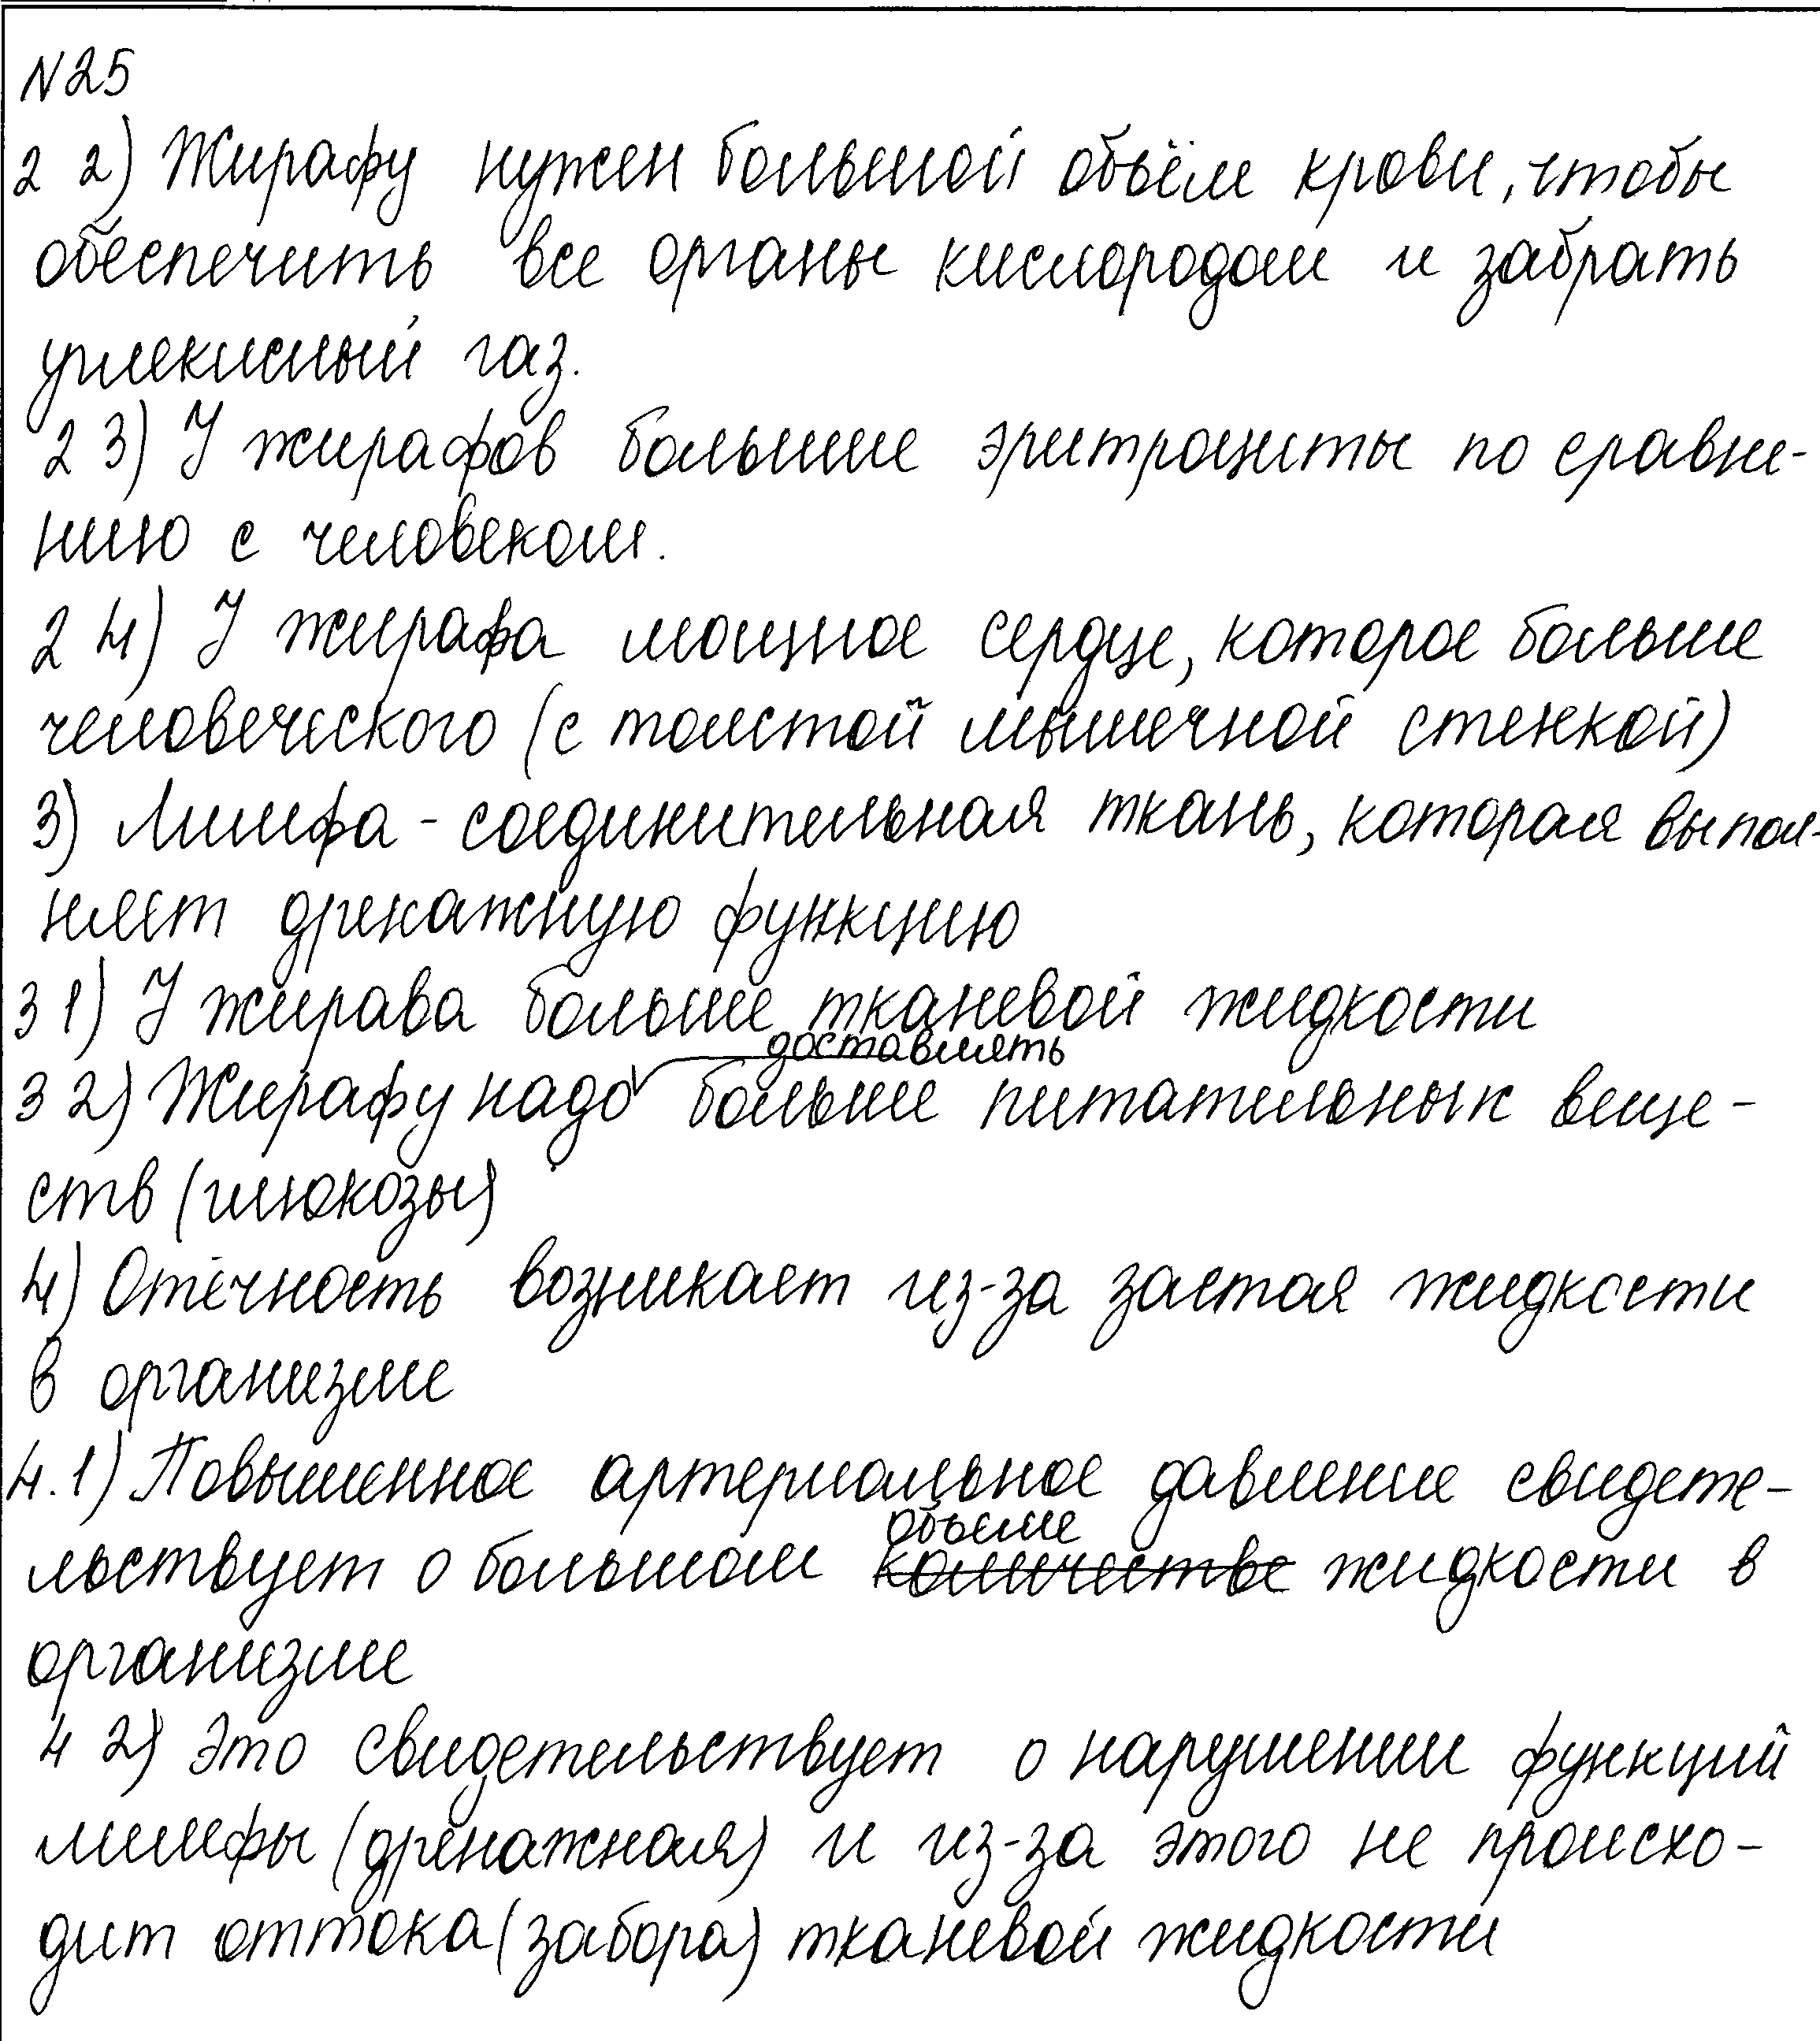 N25
2 2) Жирафу нужен большой объём крови, чтобы
обеспечить все органы кислородом и забрать
углекислый газ.
2 3) У жирафов больше эритроциты по сравне-
нию с человеком.
2 4) У жирафа мощное сердце, которое больше
человеческого (с толстой мышечной стенкой)
3) Лимфа - соединительная ткань, которая выпол-
няет дренажную функцию
3 1) У жирава больше тканевой жидкости
доставлять
3 2) Жирафу надо больше питательных веще-
ств (глюкозы)
4) Отёчность возникает из-за застоя жидкости
в организме
4.1) Повышенное артериальное давление свидете-
объеме
льствует о большом количестве жидкости в
организме
4 2) Это свидетельствует о нарушении функций
лимфы (дренажная) и из-за этого не происхо-
дит оттока (забора) тканевой жидкости